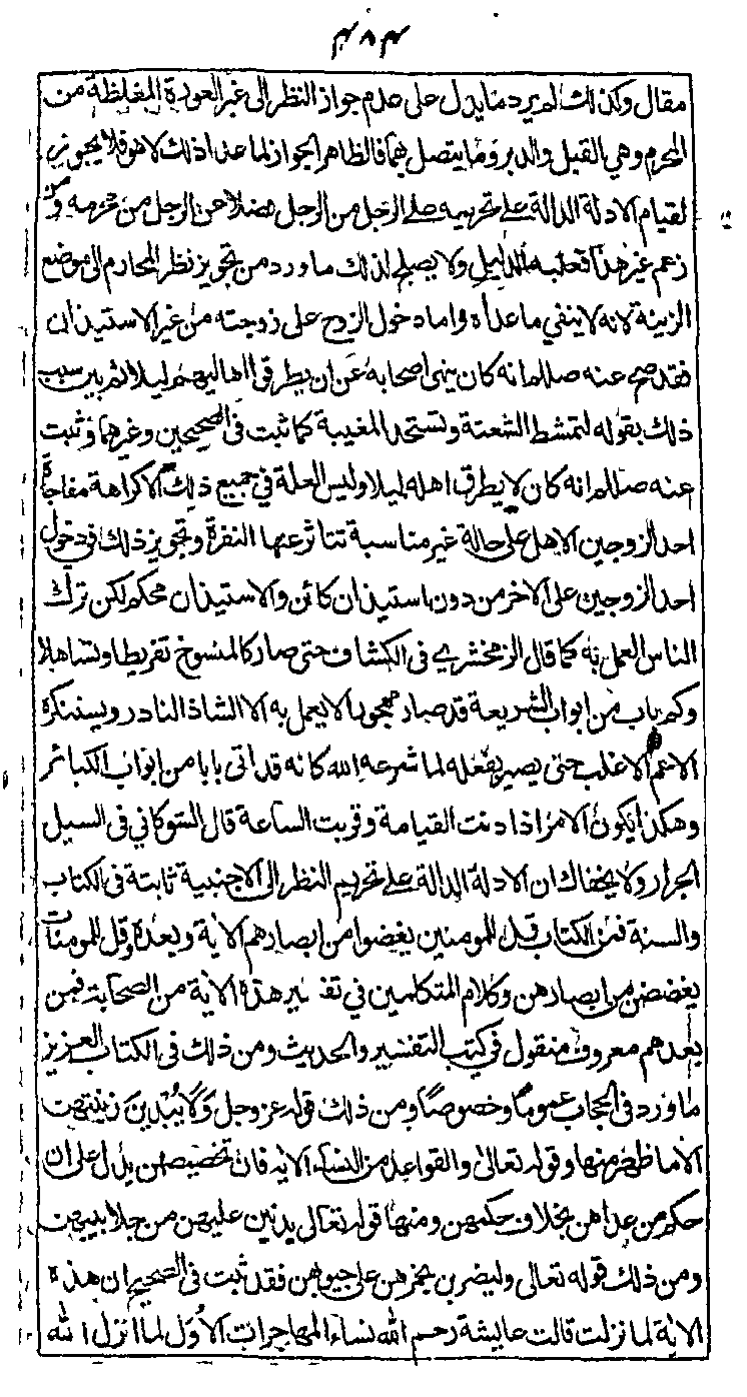 ۴۸۴
مقال وكذلك لم يرد ما يدل على عدم جواز النظر الى غير العورة المغلظة من
المحرم وهي القبل والدبر وما يتصل بهما فالظاهر الجواز لما عدا ذلك لا هو فلا يجوز
لقيام الادلة الدالة على تحريمه على الرجل من الرجل فضلا عن الرجل من محرمه ومن
زعم غير هذا فعليه بالدليل ولا يصلح لذلك ما ورد من تجويز نظر المحارم الى موضع
الزينة لانه لا ينفي ما عداه واما دخول الزوج على زوجته من غير الاستيذان
فقد صح عنه صللم انه كان ينهى اصحابه عن ان يطرقوا اهاليهم ليلا ثم بين سبب
ذلك بقوله لتمتشط الشعثة وتستحد المغيبة كما ثبت في الصحيحين وغيرهما وثبت
عنه صللم انه كان لا يطرق اهله ليلا وليس العلة في جميع ذلك الا كراهة مفاجاة
احد الزوجين الاهل على حالة غير مناسبة تتاثر عنها النفرة وتجويز ذلك في دخول
احد الزوجين على الاخر من دون استيذان كائن والاستيذان محكم لكن ترك
الناس العمل به كما قال الزمخشري في الكشاف حتى صار كالمنسوخ تفريطا وتساهلا
وكم باب من ابواب الشريعة قد صار مهجورا لا يعمل به الا الشاذ النادر ويستنكره
الاعم الاغلب حتى يصير بفعله لما شرعه الله كانه قد اتى بابا من ابواب الكبائر
وهكذا يكون الامر اذا دنت القيامة وقربت الساعة قال الشوكاني في السيل
الجرار ولا يخفاك ان الادلة الدالة على تحريم النظر الى الاجنبية ثابتة في الكتاب
والسنة فمن الكتاب قل للمومنين يغضوا من ابصارهم الاية وبعده وقل للمومنات
يغضضن من ابصارهن وكلام المتكلمين في تفسير هذه الاية من الصحابة فمن
بعدهم معروف منقول في كتب التفسير والحديث ومن ذلك في الكتاب العزيز
ما ورد في الحجاب عموما وخصوصا ومن ذلك قوله عز وجل وَلَا يُبْدِينَ زينتهن
الا ما ظهر منها وقوله تعالى والقواعد من النساء الاية فان تخصيصهن يدل على ان
حكم من عداهن بخلاف حكمهن ومنها قوله تعالى يدنين عليهن من جلابيبهن
ومن ذلك قوله تعالى وليضربن بخمرهن على جيوبهن فقد ثبت في الصحيح ان هذه
الاية لما نزلت قالت عايشة رحم الله نساء المهاجرات الاُوَل لما انزل الله